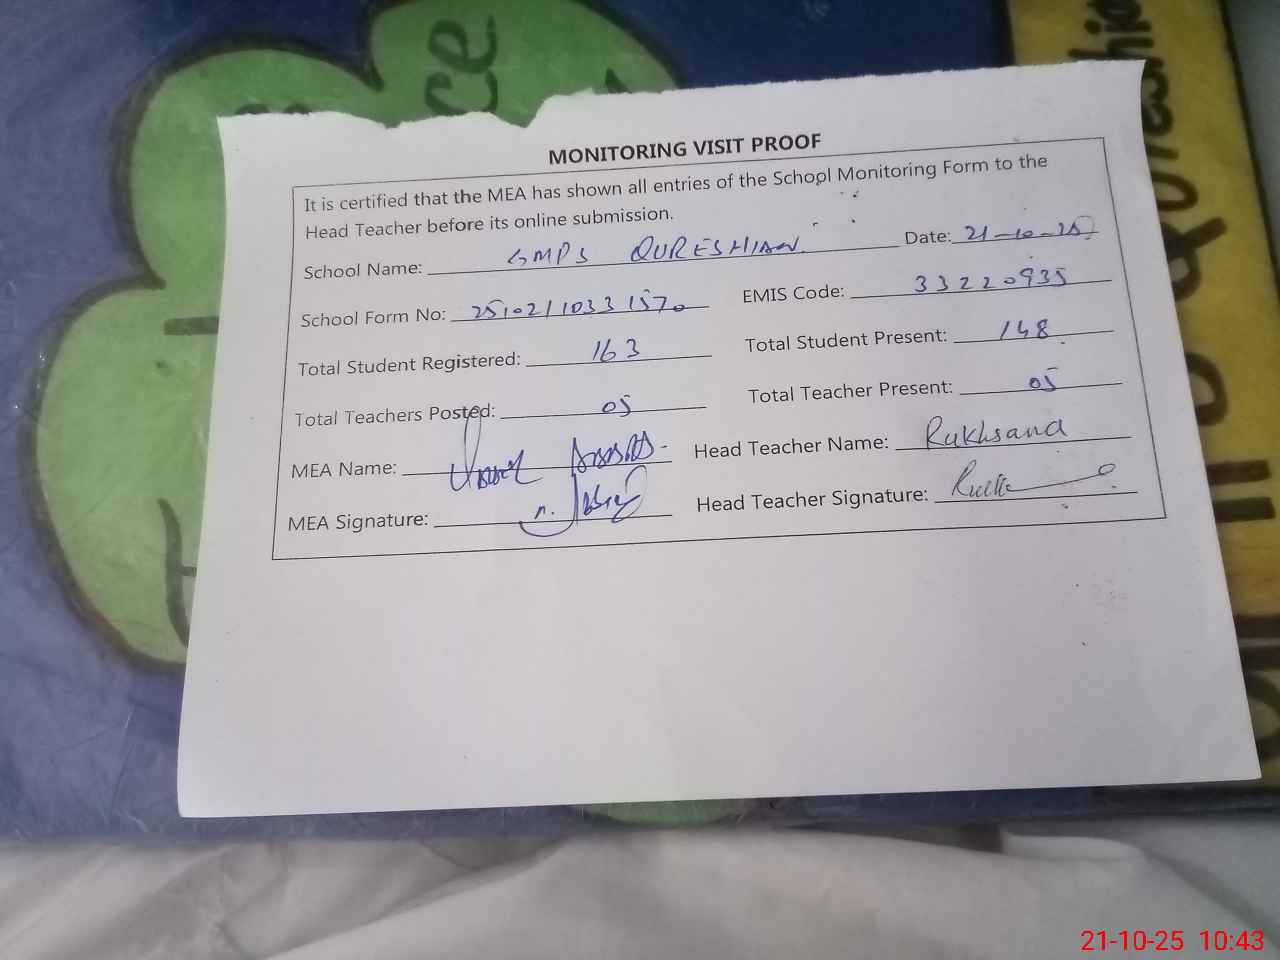 ce
MONITORING VISIT PROOF
It is certified that the MEA has shown all entries of the School Monitoring Form to the
Head Teacher before its online submission.
School Name: GMPS QURESHIAN Date: 21-10-25
School Form No: 25102110331570 EMIS Code: 33220935
Total Student Registered: 163 Total Student Present: 148
Total Teachers Posted: 05 Total Teacher Present: 05
MEA Name: Head Teacher Name: Rukhsana
MEA Signature: Head Teacher Signature:
21-10-25 10:43